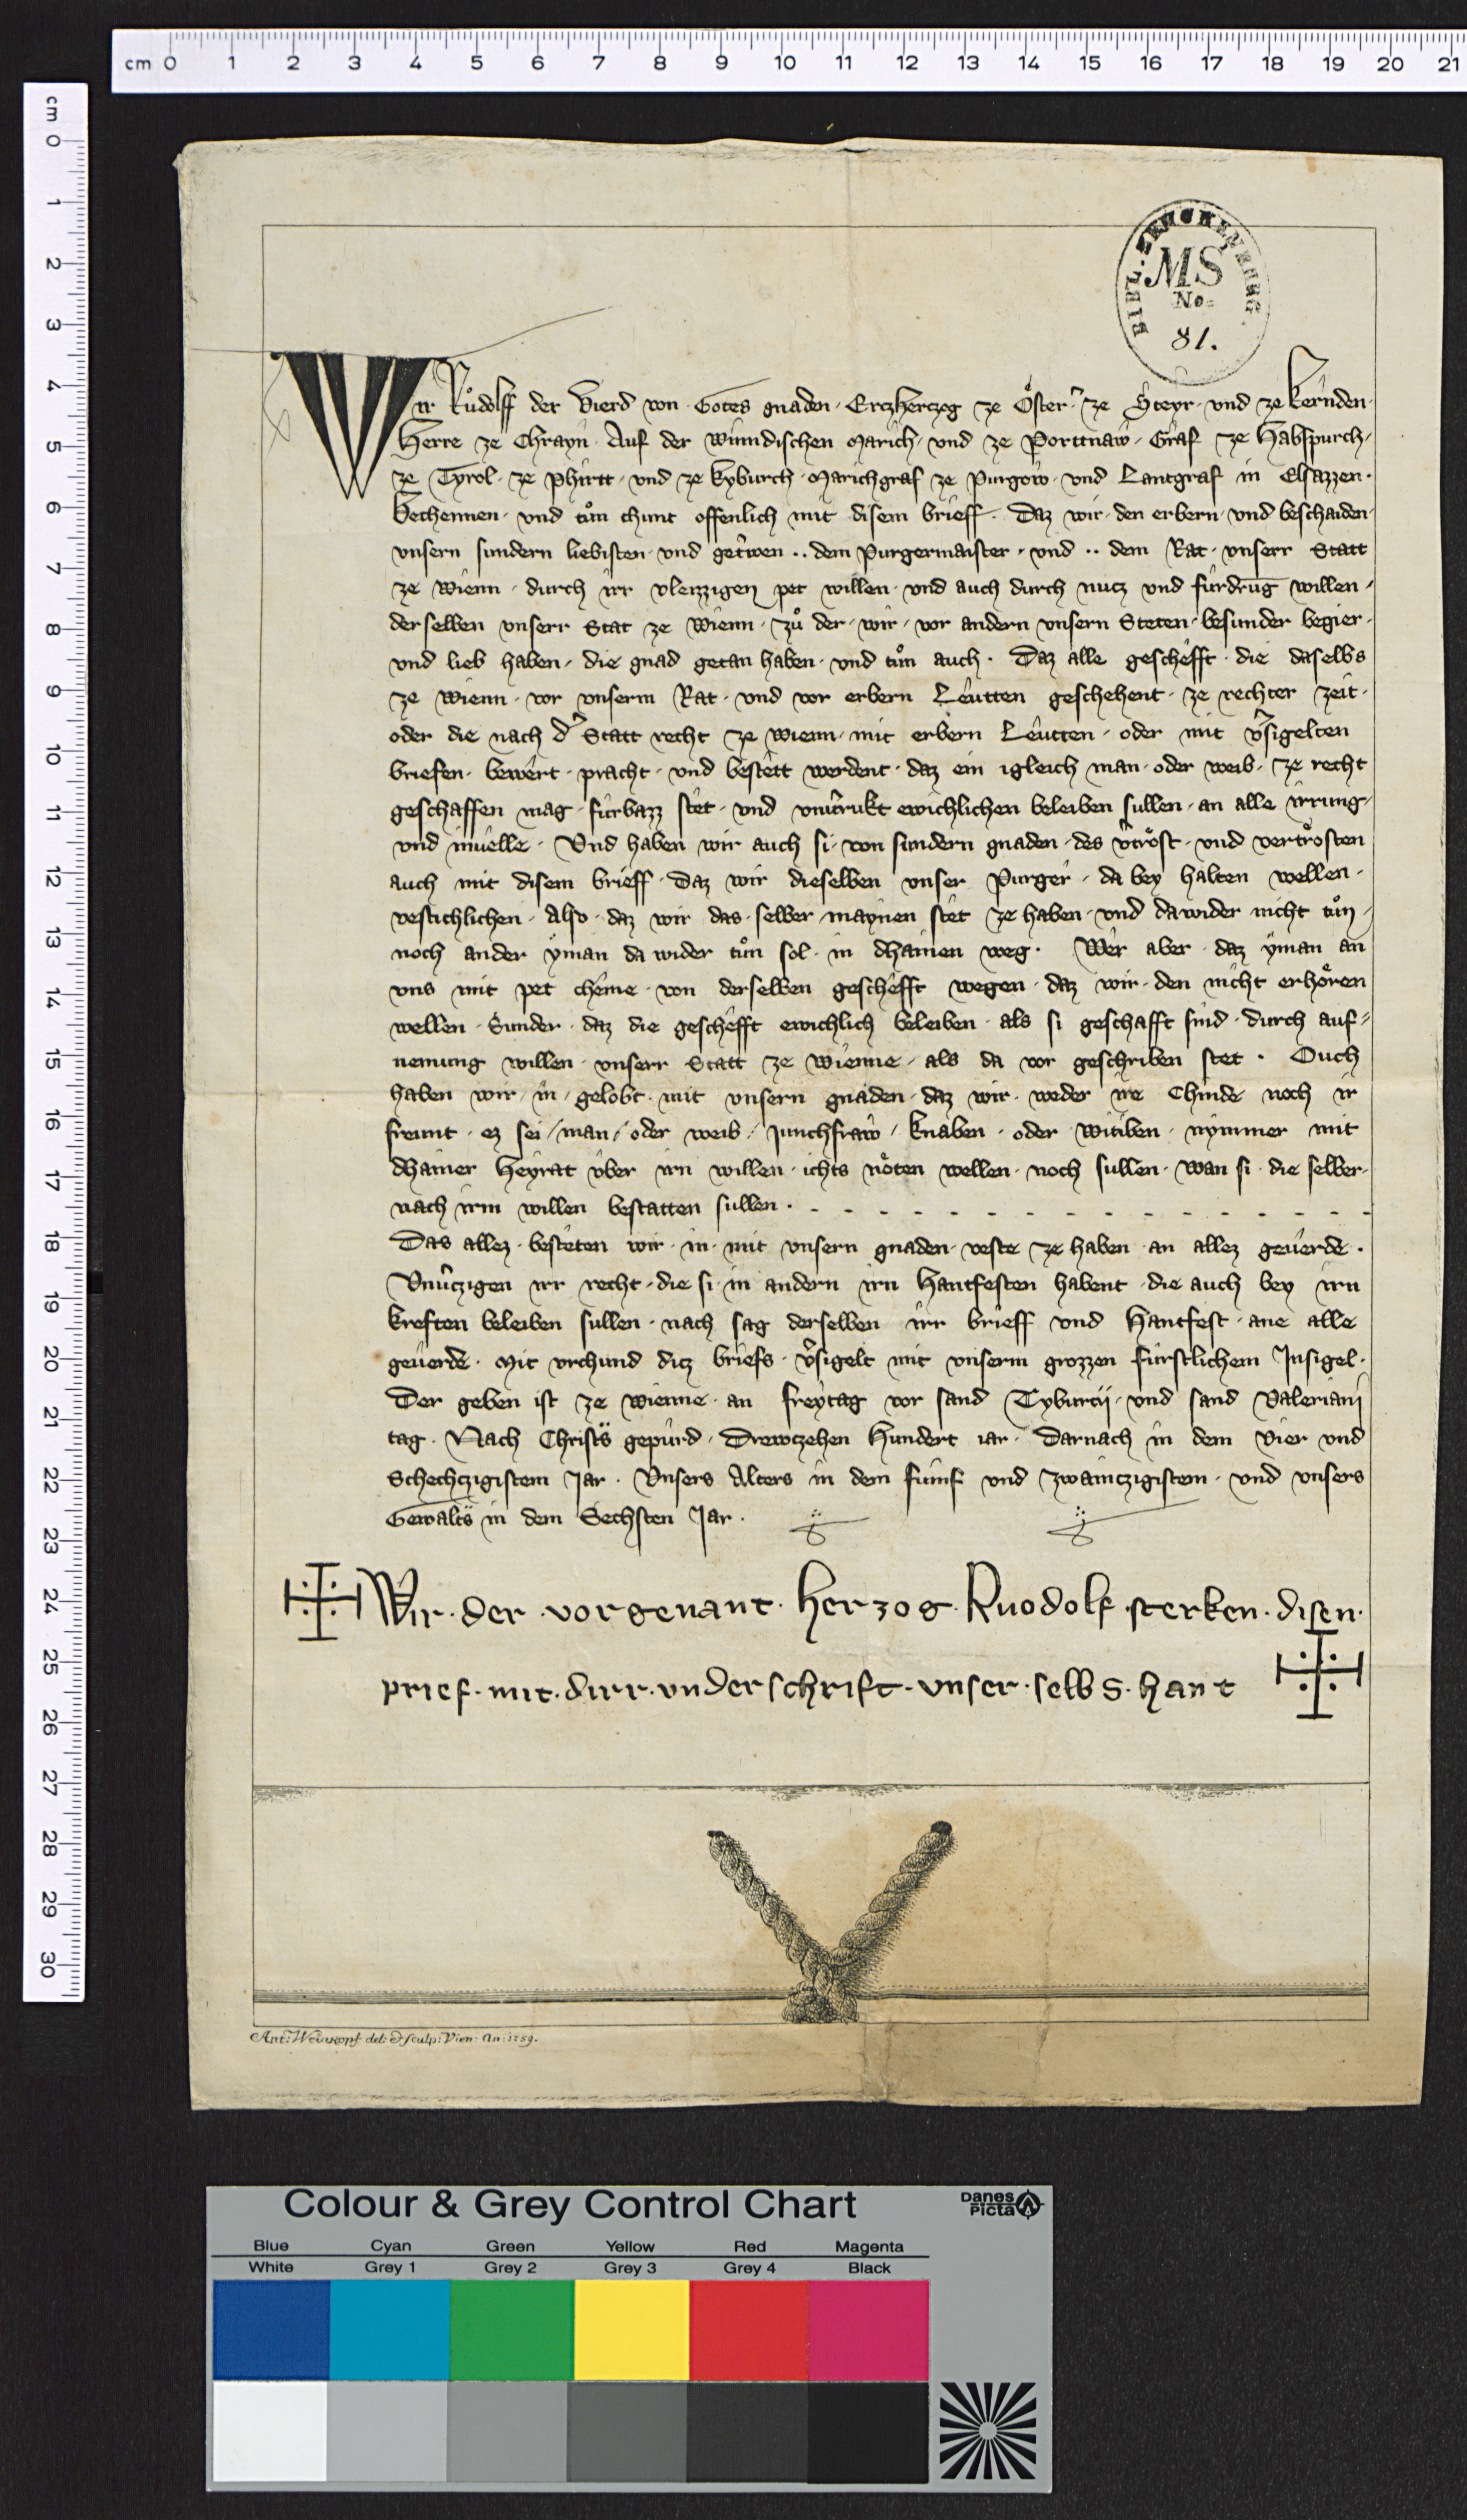 cm 0 1 2 3 4 5 6 7 8 9 10 11 12 13 14 15 16 17 18 19 20 21
cm 0 1 2 3 4 5 6 7 8 9 10 11 12 13 14 15 16 17 18 19 20 21 22 23 24 25 26 27 28 29 30
MS
No.
81.
Wir Růdolff der Vierd von Gotes gnaden · Erczherczog ze Öster · ze Steyr · und ze Kernden ·
Herre ze Chrayn · Auf der Winndischen Marich · und ze Porttnaw · Graf ze Habspurch ·
ze Tyrol · ze Phirtt · und ze Kyburch · Marichgraf ze Purgow · und Lantgraf in Elsazzen ·
Bechennen · und tůn chunt offenlich mit disem brieff · Daz wir · den erbern · und beschaiden ·
unsern sundern liebisten · und getrwen ·· dem Purgermaister · und ·· dem Rat · unserr Statt
ze Wienn · durch irr vleizzigen pet willen · und auch durch nucz und fürdrug willen ·
derselben unserr Stat ze Wienn · zů der · wir · vor andern unsern Steten · besunder begier ·
und lieb haben · die gnad getan haben · und tůn auch · Daz alle geschefft · die daselbs
ze Wienn · vor unserm Rat · und vor erbern Leutten geschehent · ze rechter zeit ·
oder die nach d' Statt recht ze Wienn · mit erbern Leutten · oder mit v'sigelten
briefen · bewert · pracht · und bestett werdent · daz ein igleich man · oder weib · ze recht
geschaffen mag · fürbazz stet · und unv'rukt ewichlichen beleiben sullen · an alle irrung ·
und inuelle · Und haben wir auch si · von sundern gnaden · des v'tröst · und vertrösten
auch mit disem brieff · Daz wir dieselben unser Purger · da bey halten wellen ·
vestichlichen · Also · daz wir das · selber maynen stet ze haben · und dawider nicht tůn ·
noch ander yman da wider tůn sol · in dhainen weg · Wer aber · daz yman an
uns mit pet cheme · von derselben geschefft wegen · daz wir · den nicht erhören
wellen · Sunder · daz die geschefft ewichlich beleiben · als si geschafft sind · durch auf=
nemung willen · unserr Statt ze Wienne · als da vor geschriben stet · Ouch
haben wir · in · gelobt · mit unsern gnaden · daz wir · weder ire Chinde noch ir
freunt · ez sei / man / oder weib / Junchfraw / knaben · oder Witiben · nymmer mit
dhainer Heyrat über irn willen · ichts nöten wellen · noch sullen · wan si · die selber ·
nach irm willen bestatten sullen · - - - - - - - - - - - - - - -
Das allez · besteten wir · in · mit unsern gnaden · veste ze haben · an allez geuerde ·
Unv'czigen irr recht · die si · in andern irn Hantfesten habent · die auch bey irn
kreften beleiben sullen · nach sag derselben irr brieff und Hantfest · ane alle
geuerde · Mit urchund dicz briefs · v'sigelt mit unserm grozzen fürstlichem Insigel ·
Der geben ist ze Wienne · an freytag vor sand Tyburcij · und sand Valeriani
tag · Nach Christs gepurd · Drewczehen Hundert iar · Darnach in dem Vier und
Schechzigistem Jar · Unsers Alters in dem fümf und zwainczigistem · und unsers
Gewalts in dem Sechsten Jar ·
Wir · der · vorgenant · herzog · Ruodolf · sterken · disen ·
prief · mit · dirr · underschrift · unser · selbs · hant
Ant: Weinkopf del: & sculp: Vien: An: 1759.
Colour & Grey Control Chart
Danes
Picta
Blue Cyan Green Yellow Red Magenta
White Grey 1 Grey 2 Grey 3 Grey 4 Black